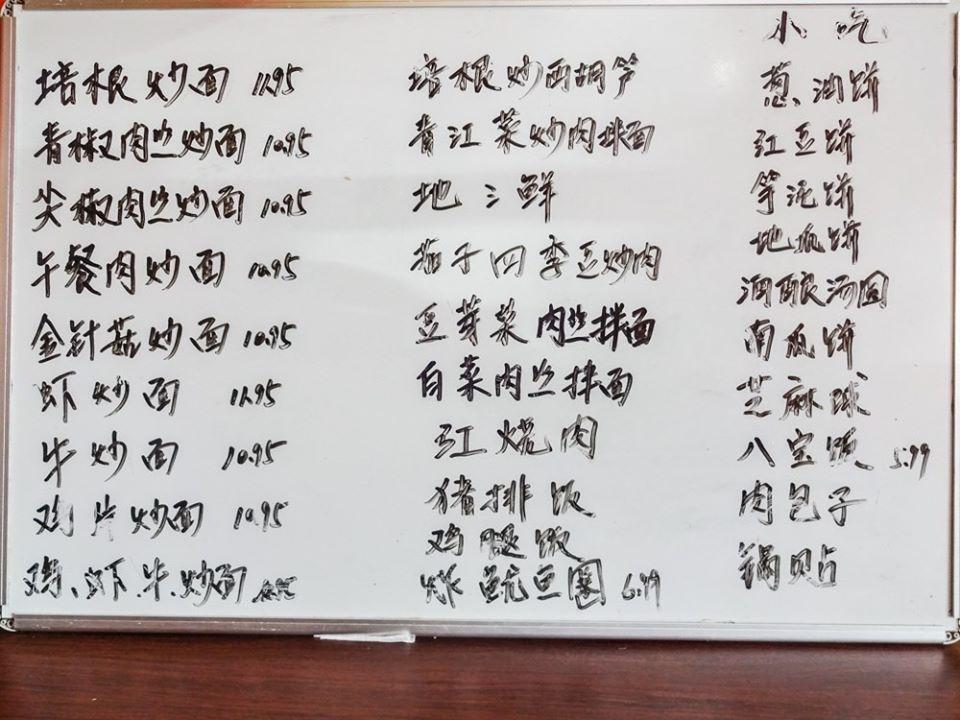 培根炒面 11.95
青椒肉丝炒面 10.95
尖椒肉丝炒面 10.95
午餐肉炒面 10.95
金针菇炒面 10.95
虾炒面 11.95
牛炒面 10.95
鸡片炒面 10.95
鸡、虾、牛、炒面
培根炒西胡笋
青江菜炒肉拌面
地三鲜
茄子四季豆炒肉
豆芽菜肉丝拌面
白菜肉丝拌面
红烧肉
猪排饭
鸡腿饭
炸鱿鱼圈 6.99
小吃
葱油饼
红豆饼
芋泥饼
地瓜饼
酒酿汤圆
南瓜饼
芝麻球
八宝饭 5.99
肉包子
锅贴